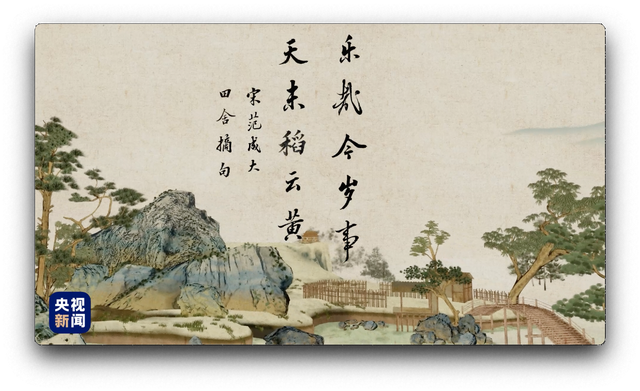 乐哉今岁事
天末稻云黄
宋范成大
田舍摘句
央视
新闻